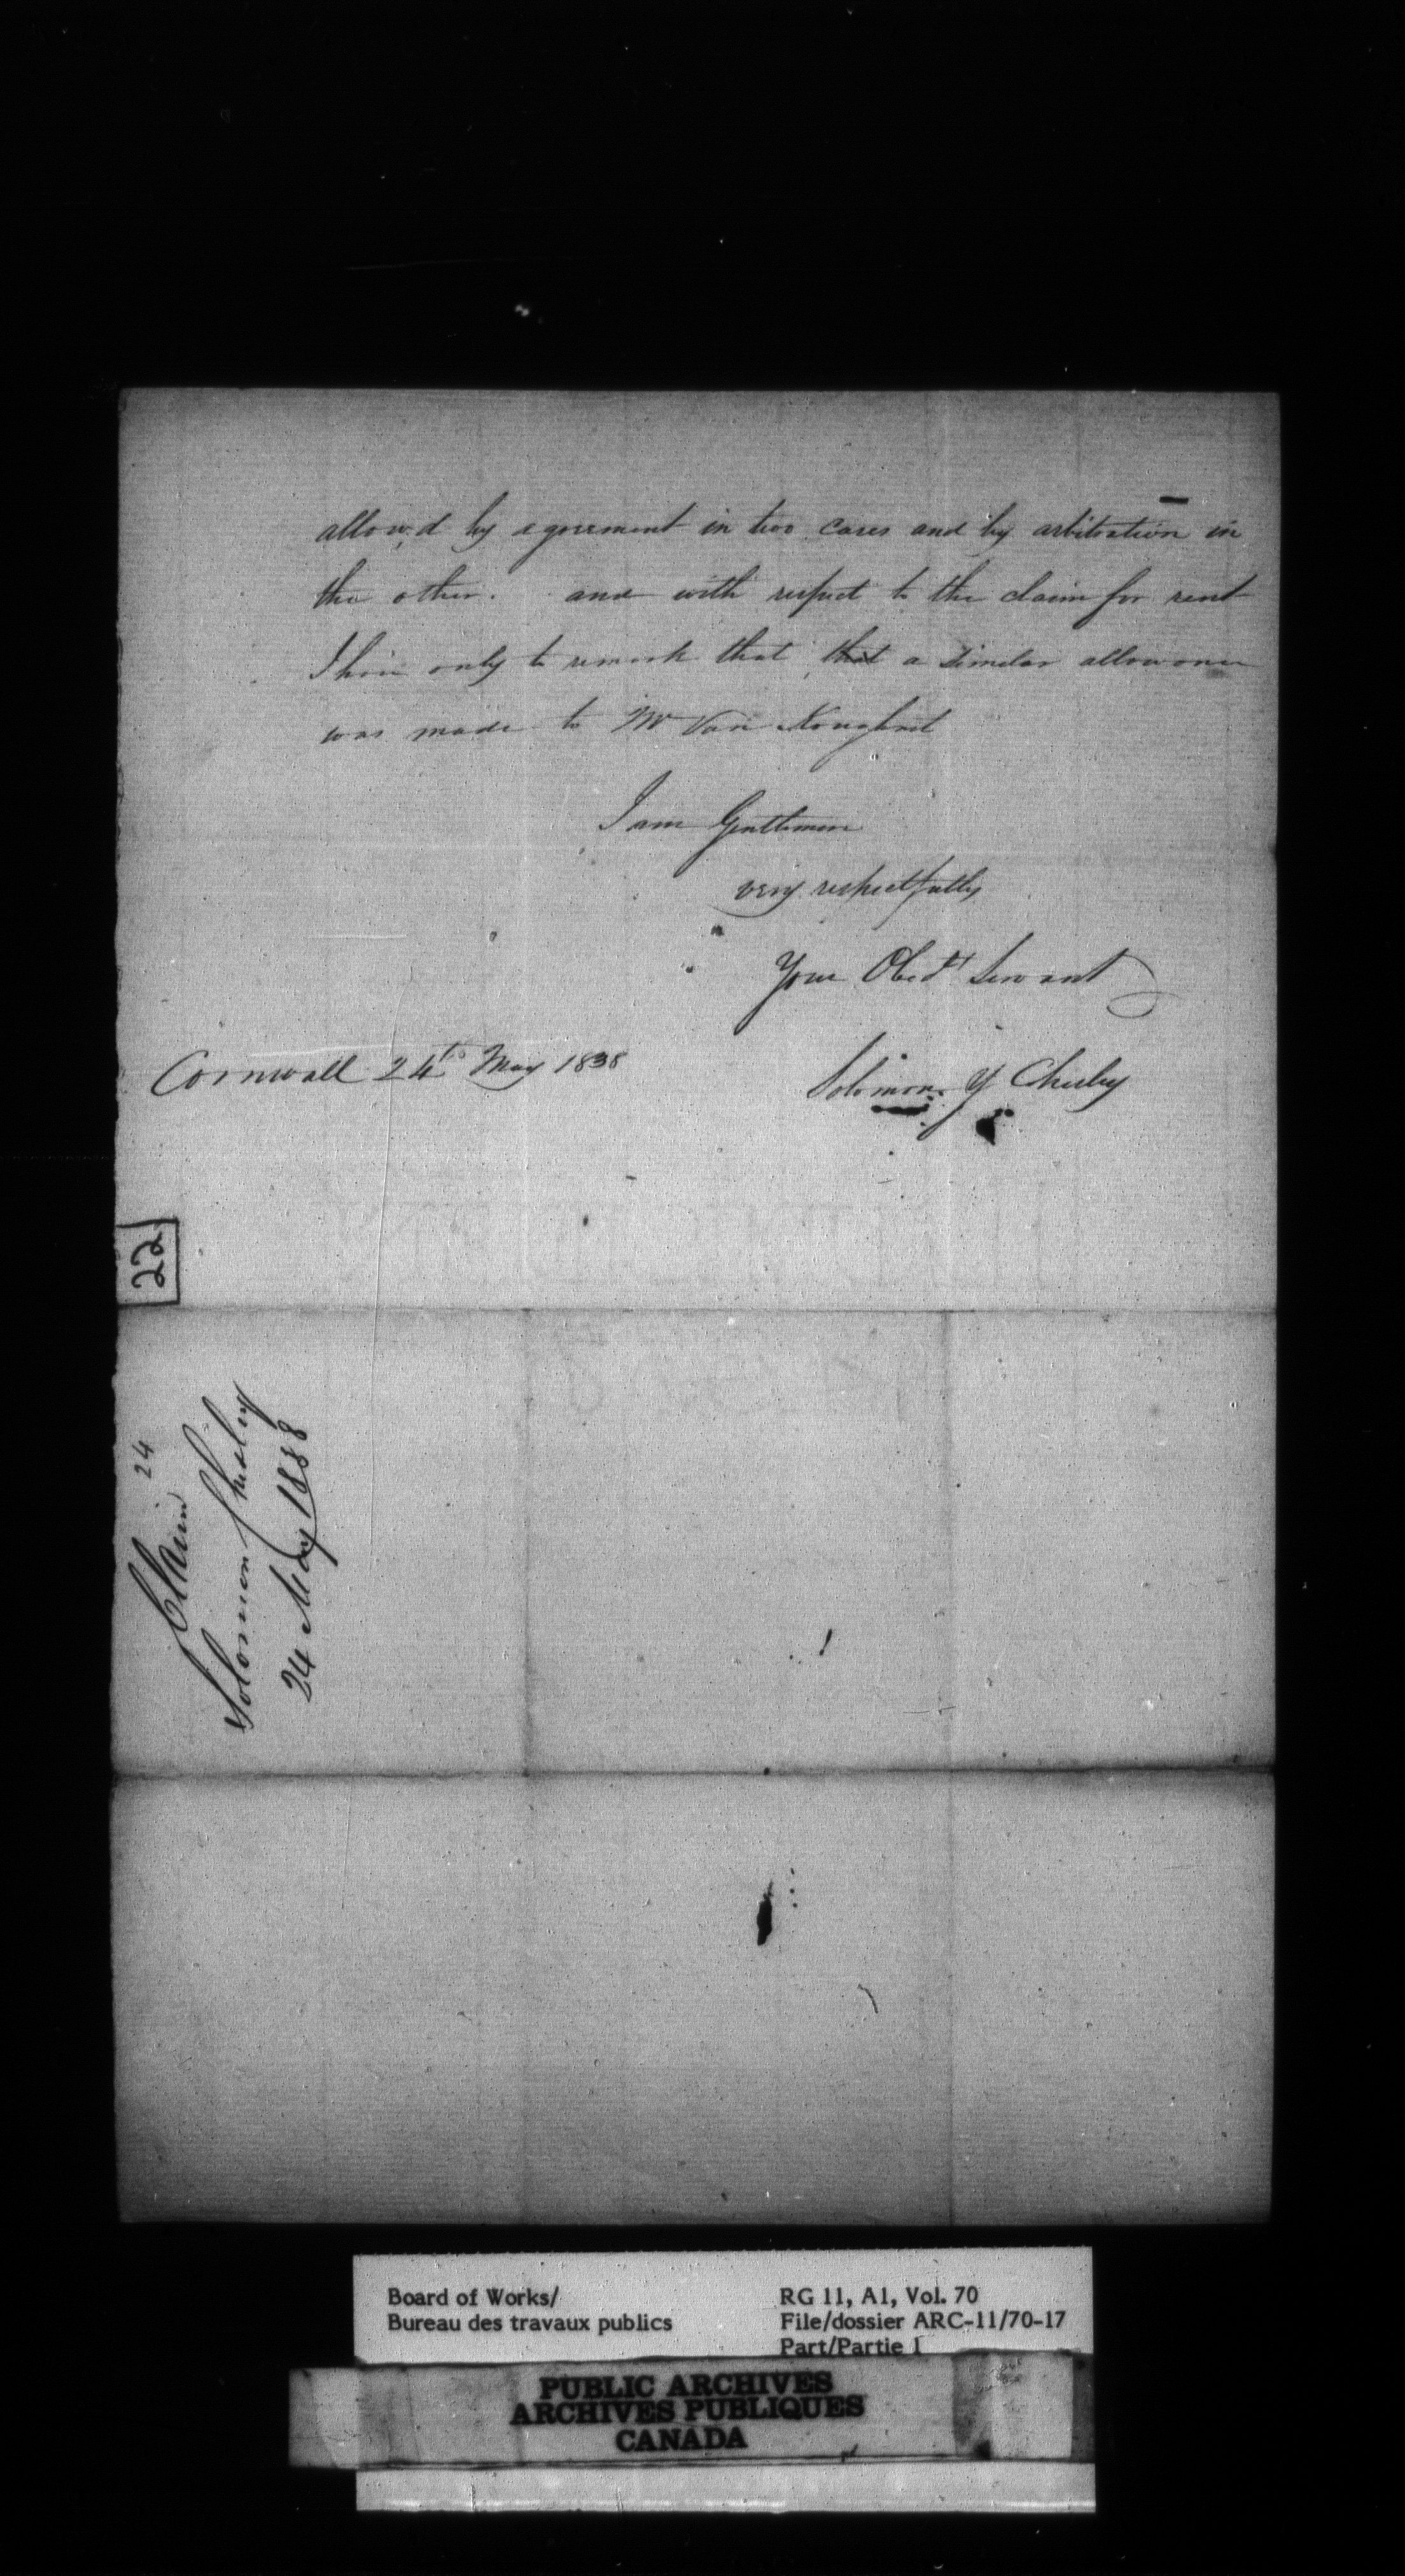 allow,d by agreement in two cases and by arbitration in
the other. and with respect to the claim for rent
I have only to remark that that a similar allowance
was made to Mr Van Koughnet
I am Gentlemen
very respectfully
Your Obedt Servant
Cornwall 24th May 1838
Solomon Y Chesley
22
24
Claim
Solomon Chesley
24 May 1838
Board of Works/
Bureau des travaux publics
RG 11, A1, Vol. 70
File/dossier ARC-11/70-17
Part/Partie 1
PUBLIC ARCHIVES
ARCHIVES PUBLIQUES
CANADA